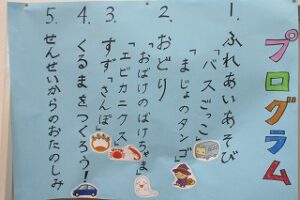 プログラム
1. ふれあいあそび
「バスごっこ」
2. おどり
「まじょのタンゴ」
「おばけのばけちゃま」
「エビカニクス」
3. すず「さんぽ」
4. くるまをつくろう!
5. せんせいからのおたのしみ